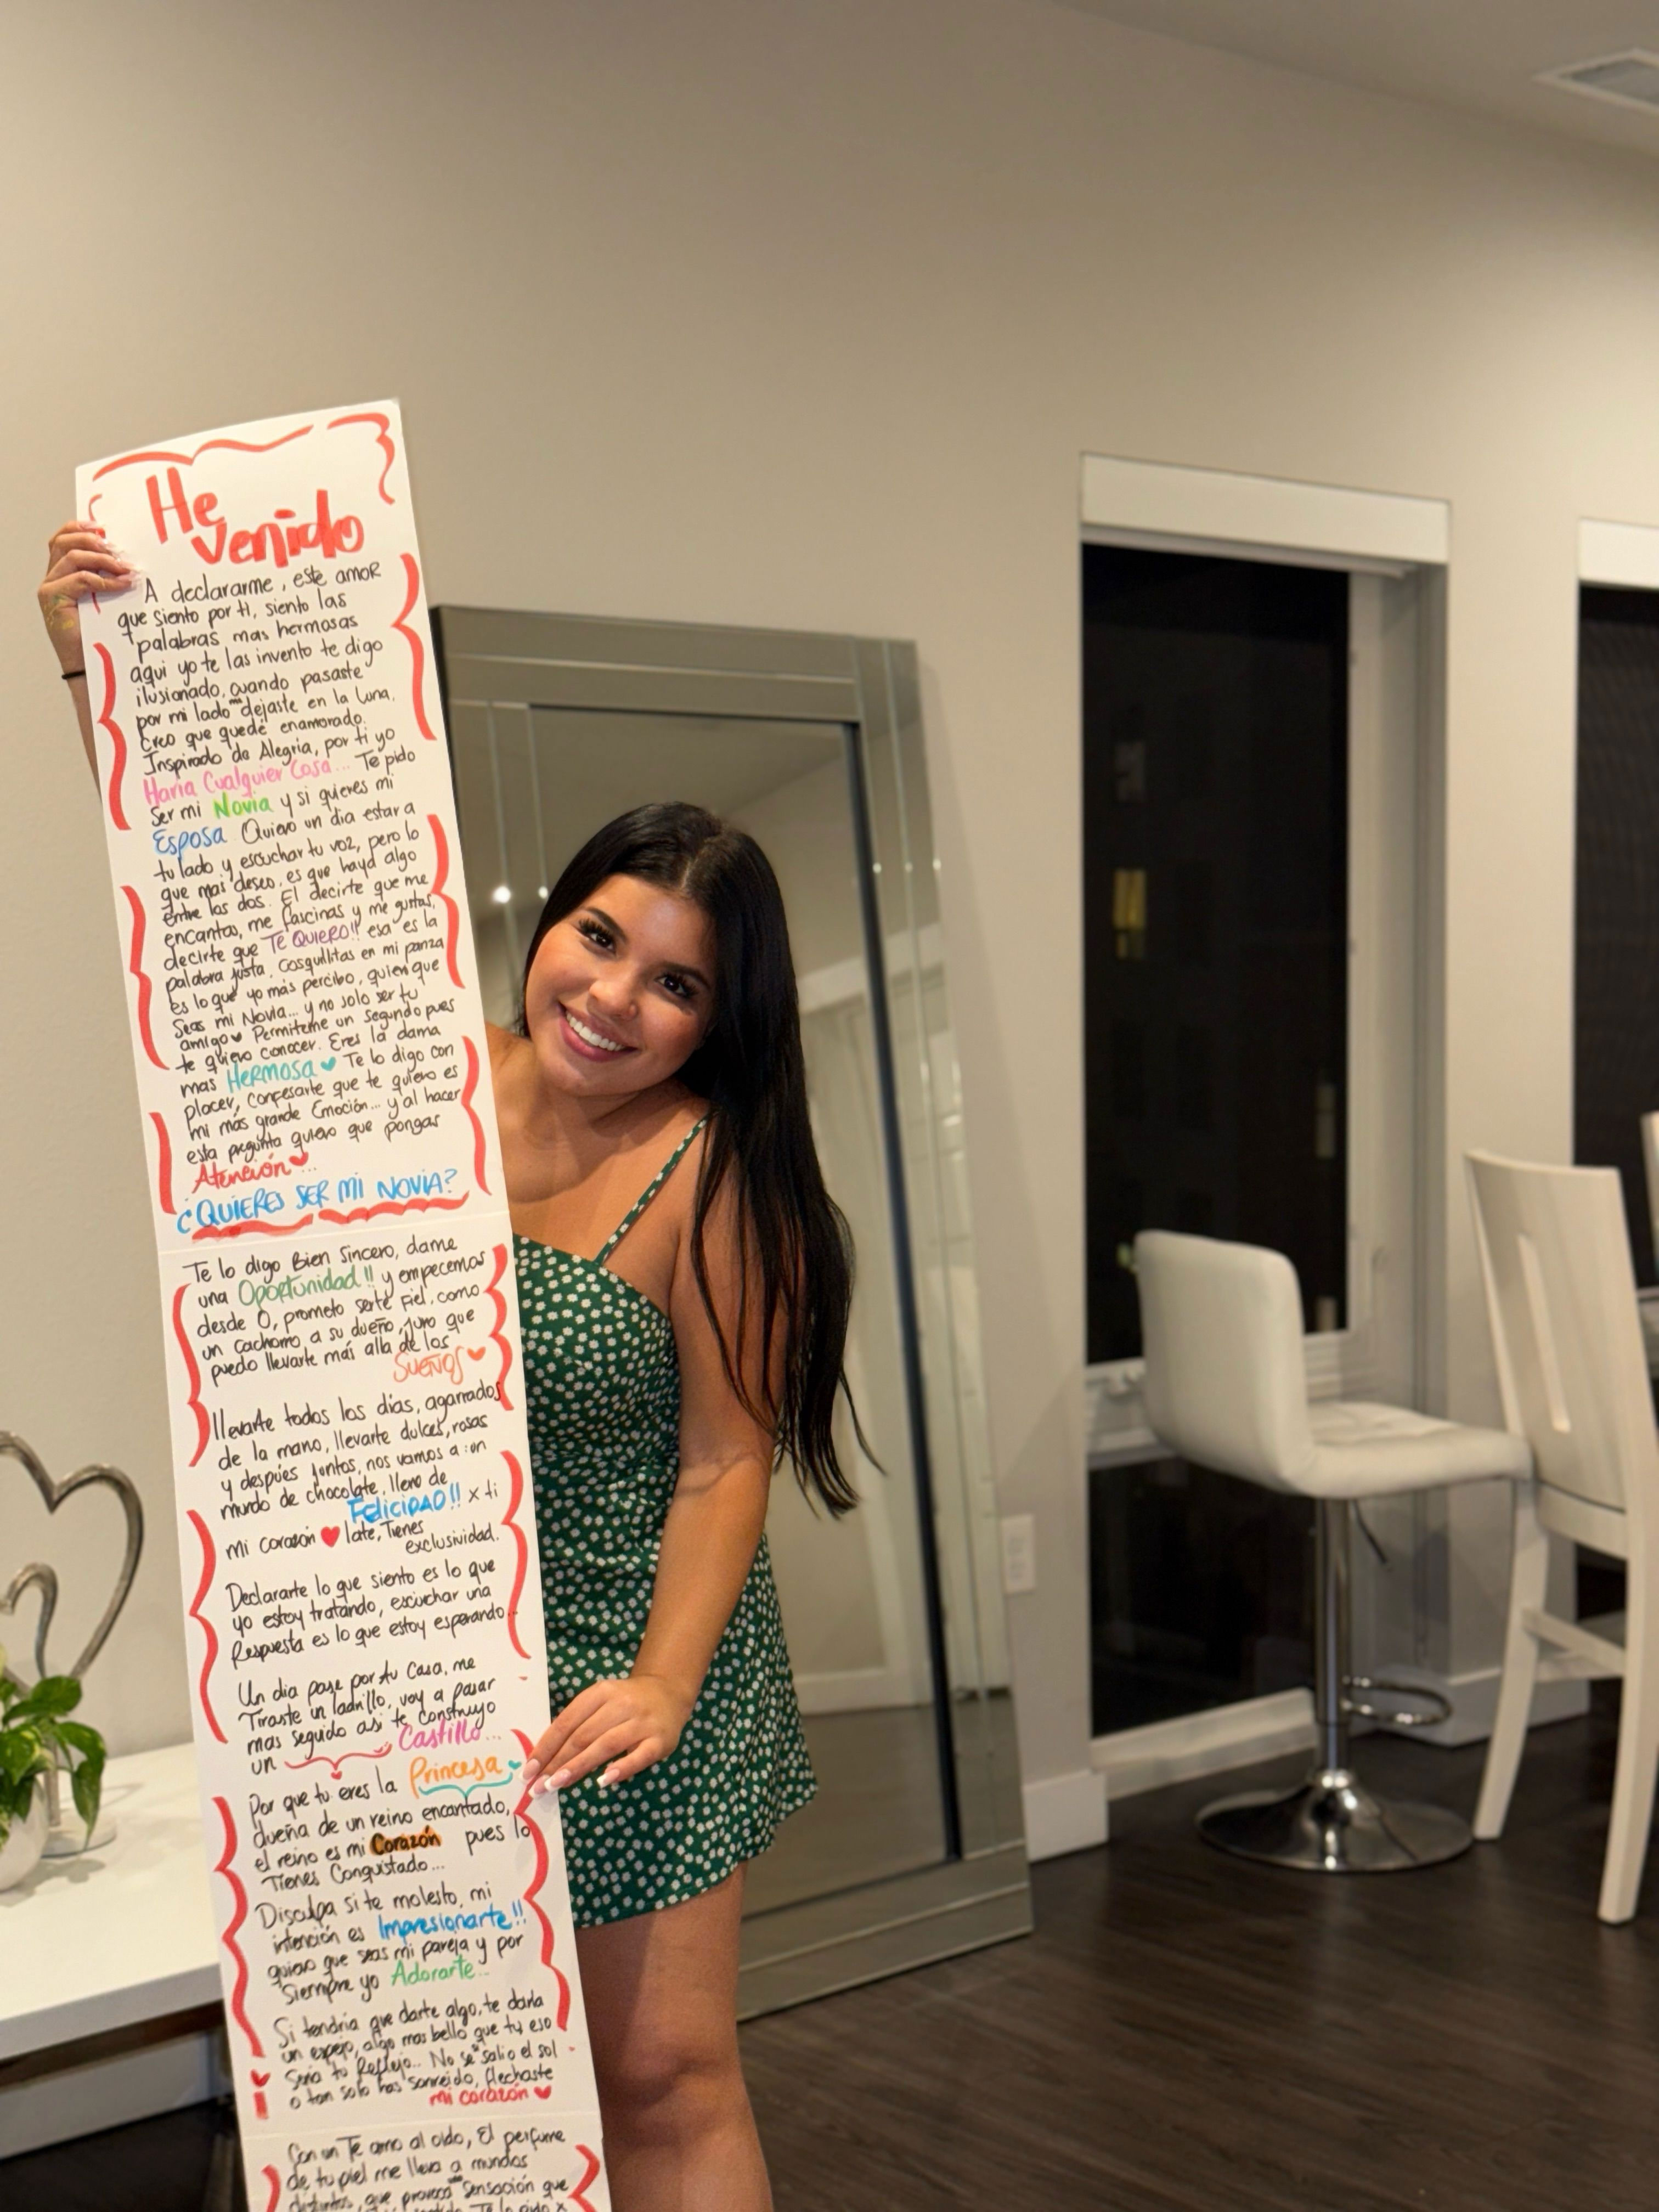 He
venido
A declararme, este amor
que siento por ti, siento las
palabras mas hermosas
aqui yo te las invento te digo
ilusionado, cuando pasaste
por mi lado me dejaste en la luna.
Creo que quedé enamorado.
Inspirado de Alegria, por ti yo
Haria Cualquier Cosa... Te pido
Ser mi Novia y si quieres mi
Esposa Quiero un dia estar a
tu lado y escuchar tu voz, pero lo
que mas deseo, es que haya algo
entre los dos. El decirte que me
encantas, me fascinas y me gustas,
decirte que TE QUIERO!! esa es la
palabra justa. Cosquillitas en mi panza
es lo que yo más percibo, quiero que
Seas mi Novia... y no solo ser tu
amigo♥ Permiteme un segundo pues
te quiero conocer. Eres la dama
mas Hermosa♥ Te lo digo con
placer, confesarte que te quiero es
mi más grande Emoción... y al hacer
esta pregunta quiero que pongas
Atención♥...
¿QUIERES SER MI NOVIA?
Te lo digo Bien Sincero, dame
una Oportunidad!! y empecemos
desde 0, prometo serte Fiel, como
un cachorro a su dueño, juro que
puedo llevarte más alla de los
SUEÑOS♥
llevarte todos los dias, agarrados
de la mano, llevarte dulces, rosas
y despúes juntos, nos vamos a: un
mundo de chocolate, lleno de
FELICIDAD!! x ti
mi corazón ♥ late, Tienes
exclusividad.
Declararte lo que siento es lo que
yo estoy tratando, escuchar una
Respuesta es lo que estoy esperando...
Un dia pase por tu Casa, me
Tiraste un ladrillo, voy a pasar
mas seguido asi te construyo
un Castillo...
Por que tu eres la Princesa♥
dueña de un reino encantado,
el reino es mi Corazón pues lo
Tienes Conquistado...
Disculpa si te molesto, mi
intención es Impresionarte!!
quiero que seas mi pareja y por
Siempre yo Adorarte...
Si tendria que darte algo, te daria
un espejo, algo mas bello que tu eso
Seria tu Reflejo... No se salio el sol
o tan solo has sonreido, flechaste
mi corazón ♥
Con un Te amo al oido, El perfume
de tu piel me lleva a mundos
distintos, que provoca sensación que